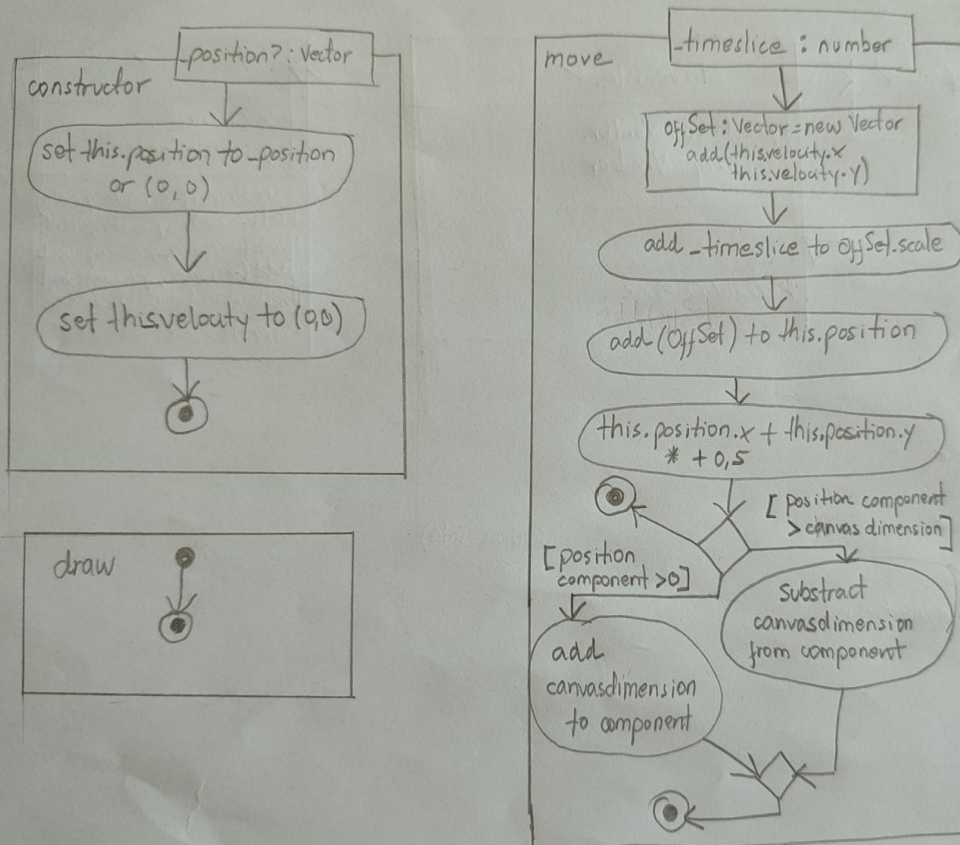 _position? : Vector
constructor
set this.position to _position
or (0,0)
set this.velocity to (0,0)
draw
_timeslice : number
move
offSet : Vector = new Vector
add(this.velocity.x
this.velocity.y)
add _timeslice to offSet.scale
add (OffSet) to this.position
this.position.x + this.position.y
* + 0,5
[position component
> canvas dimension]
[position
component >0]
substract
canvasdimension
from component
add
canvasdimension
to component